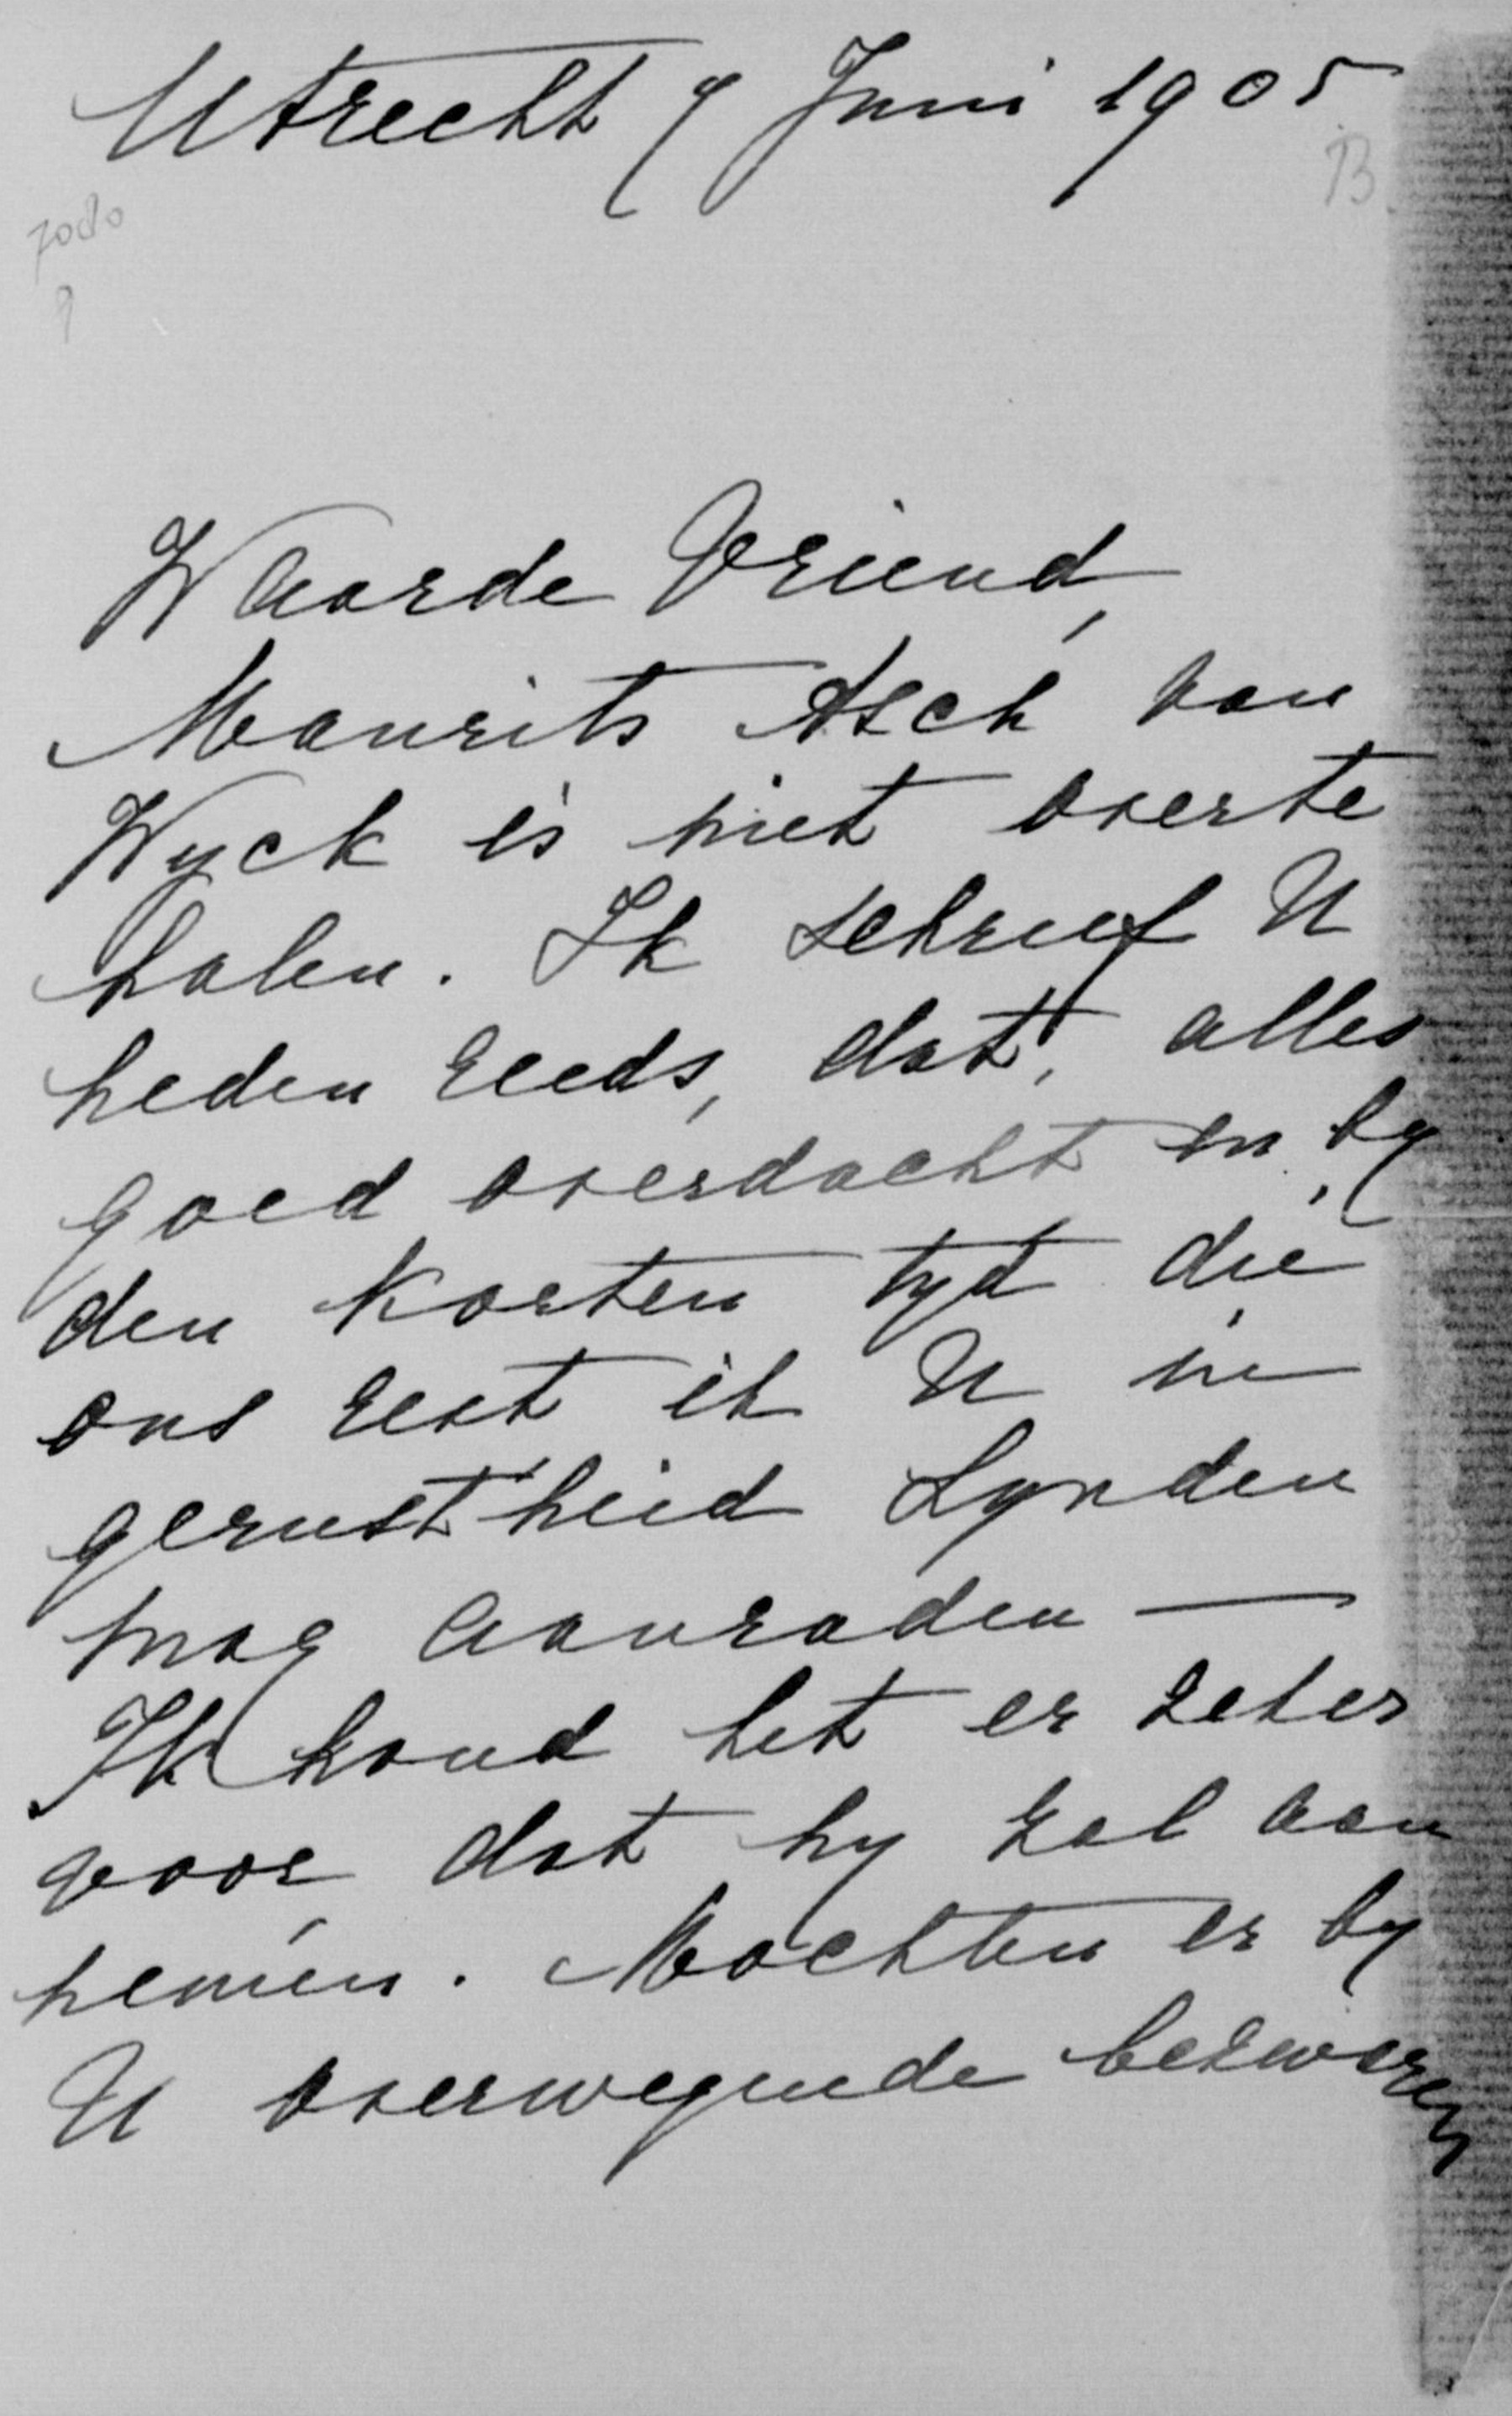 Utrecht 9 Juni 1905
B.
Waarde Vriend,
Maurits Asch van
Wyck is niet overte
halen. Ik schreef U
heden reeds, dat, alles
goed overdacht en, by
den korten tyd die
ons rest ik U in
gerustheid Lynden
mag aanraden —
Ik houd het er zeker
voor, dat hy zal aan
nemen. Mochten er by
U overwegende bezwaren